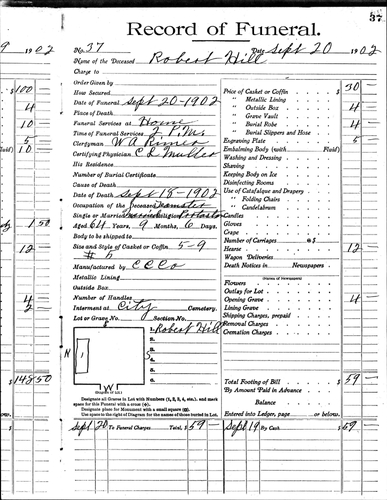 37
Record of Funeral.
9 1902
No. 37 Date Sept 20 1902
Name of the Deceased Robert Hill
Charge to
Order Given by
How Secured
Date of Funeral Sept 20-1902
Place of Death
Funeral Services at Home
Time of Funeral Services 2 P.M.
Clergyman W A Rimer
Certifying Physician C L Muller
His Residence
Number of Burial Certificate
Cause of Death
Date of Death Sept 18-1902
Occupation of the Deceased Teamster
Single or Married Religion
Aged 64 Years, 9 Months, 6 Days
Body to be shipped to
Size and Style of Casket or Coffin 5-9
# 5
Manufactured by C C Co
Metallic Lining
Outside Box
Number of Handles
Interment at City Cemetery.
Lot or Grave No. Section No.
1. Robert Hill
2.
3.
4.
5.
6.
N
S
W
(Diagram of Lot.)
Designate all Graves in Lot with Numbers (1, 2, 3, 4, etc.), and mark
space for this Funeral with a cross (+).
Designate place for Monument with a small square (□).
Use space in the right of Diagram for the names of those buried in Lot.
Price of Casket or Coffin $ 30 —
" Metallic Lining
" Outside Box 4
" Grave Vault
" Burial Robe 4
" Burial Slippers and Hose
Engraving Plate 5
Embalming Body (with Fluid)
Washing and Dressing
Shaving
Keeping Body on Ice
Disinfecting Rooms
Use of Catafalque and Drapery
" Folding Chairs
" Candelabrum
Candles
Gloves
Crape
Number of Carriages @ $
Hearse 12 —
Wagon Deliveries
Death Notices in Newspapers
(Names of Newspapers)
Flowers
Outlay for Lot
Opening Grave 4
Lining Grave
Shipping Charges, prepaid
Removal Charges
Cremation Charges
Total Footing of Bill $ 59 —
By Amount Paid in Advance
Balance
Entered into Ledger, page or below.
Sept 20 To Funeral Charges Total, $ 59 — Sept 19 By Cash $ 59 —
$ 100 —
4
10
4
5
Fluid) 10 —
1 50
12 —
4
2
$ 148 50